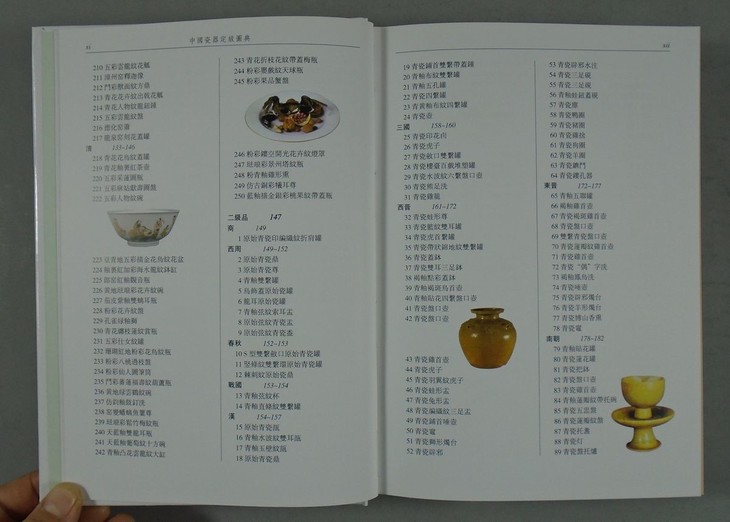 xi
中國瓷器定級圖典
210 五彩雲龍紋花觚
212 鬥彩獸面紋方鼎
213 青花花卉紋出戟花觚
214 青花人物紋龍鈕鐘
215 五彩雲龍紋盤
216 德化窑簫
217 龍泉窑刻花蓋罐
清 133–146
218 青花花鳥紋蓋罐
219 青花釉裏紅茶壺
220 五彩釆蓮圖瓶
221 五彩麻姑獻壽圖盤
222 五彩人物紋碗
223 豆青地五彩描金花鳥紋花盆
224 釉裏紅加彩海水龍紋鉢缸
225 郎窑紅釉觀音瓶
226 黄地琺瑯彩花卉紋碗
227 茄皮紫釉雙螭耳瓶
228 粉彩花卉紋盤
229 孔雀緑釉獅
230 青花纏枝蓮紋賞瓶
231 五彩仕女紋罐
232 珊瑚紅地粉彩花鳥紋瓶
233 粉彩八桃過枝盤
234 粉彩仙人圖筆筒
236 黄地緑雲鶴紋碗
237 仿鈞釉鼓釘洗
239 琺瑯彩題竹梅紋瓶
240 天藍釉雙龍耳瓶
241 天藍釉菊瓣紋十方碗
242 青釉凸花雲龍紋大缸
243 青花折枝花紋帶蓋梅瓶
244 粉彩夔鳳紋天球瓶
245 粉彩果品蟹盤
246 粉彩鏤空開光花卉紋燈罩
247 琺瑯彩景州塔紋瓶
248 粉青釉鷄形熏
249 仿古銅彩犧耳尊
250 藍釉描金銀彩桃果紋帶蓋瓶
二級品 147
商 149
1 原始青瓷印編織紋折肩罐
西周 149–152
2 原始青瓷鼎
3 原始青瓷尊
4 青釉雙繫罐
5 鳥飾蓋原始瓷罐
6 龍耳原始瓷罐
7 青釉弦紋索耳盂
8 原始弦紋青瓷盂
9 原始弦紋青瓷盉
春秋 152–153
10 S 型雙繫敞口原始青瓷罐
11 竪條紋雙繫環原始青瓷罐
12 棘刺紋原始瓷鼎
戰國 153–154
13 青釉弦紋杯
14 青釉直條紋雙繫罐
漢 154–157
15 原始青瓷瓿
16 青釉水波紋雙耳瓿
17 青釉玉璧紋瓿
18 原始青瓷鼎
xii
19 青瓷鋪首雙繫帶蓋鍾
20 青釉布紋雙繫罐
21 青釉五孔罐
22 青瓷四繫罐
23 青黄釉布紋四繫罐
24 青瓷壺
三國 158–160
25 青瓷印花卣
26 青瓷虎子
27 青瓷敞口雙繫罐
28 青瓷樓臺百戲堆塑罐
29 青瓷水波紋六繫盤口壺
30 青瓷熊足洗
31 青瓷鷄籠
西晋 161–172
32 青瓷蛙形尊
33 青瓷籃紋雙耳罐
34 青瓷虎首雙繫罐
35 青瓷帶狀網地紋雙繫罐
36 青瓷蓋鉢
37 青瓷雙耳三足鉢
38 褐釉點彩蓋鉢
39 青釉褐斑鳥首壺
40 青釉貼花四繫盤口壺
41 青瓷盤口壺
42 青瓷盤口壺
43 青瓷鷄首壺
44 青瓷虎子
45 青瓷羽翼紋虎子
46 青瓷蛙形盂
47 青瓷兔形盂
48 青瓷編織紋三足盂
49 青瓷鋪首唾壺
50 青瓷竈
51 青瓷獅形燭台
52 青瓷辟邪
53 青瓷辟邪水注
54 青瓷三足硯
55 青瓷三足硯
56 青瓷蛙鈕蓋硯
57 青瓷廁
58 青瓷鴨圈
59 青瓷豬圈
61 青瓷狗圈
62 青瓷羊圈
64 青瓷鏤孔器
東晋 172–177
65 青釉五聯罐
66 褐釉鷄首壺
67 青瓷褐斑鷄首壺
68 青瓷盤口壺
69 雙繫青瓷盤口壺
70 青瓷蓮瓣紋鷄首壺
71 青瓷鷄首壺
72 青瓷“偶”字洗
73 褐釉鳳鳥洗
74 青瓷唾壺
75 青瓷辟邪燭台
76 青瓷羊形燭台
77 青瓷博山香熏
78 青瓷竈
南朝 178–182
79 青釉貼花罐
80 青瓷蓮花罐
81 青瓷把鉢
82 青瓷盤口壺
83 青瓷鷄首壺
84 青釉蓮瓣紋帶托碗
85 青瓷五盅盤
86 青瓷蓮瓣紋盤
87 青瓷托盞
88 青瓷灯
89 青瓷盤托爐